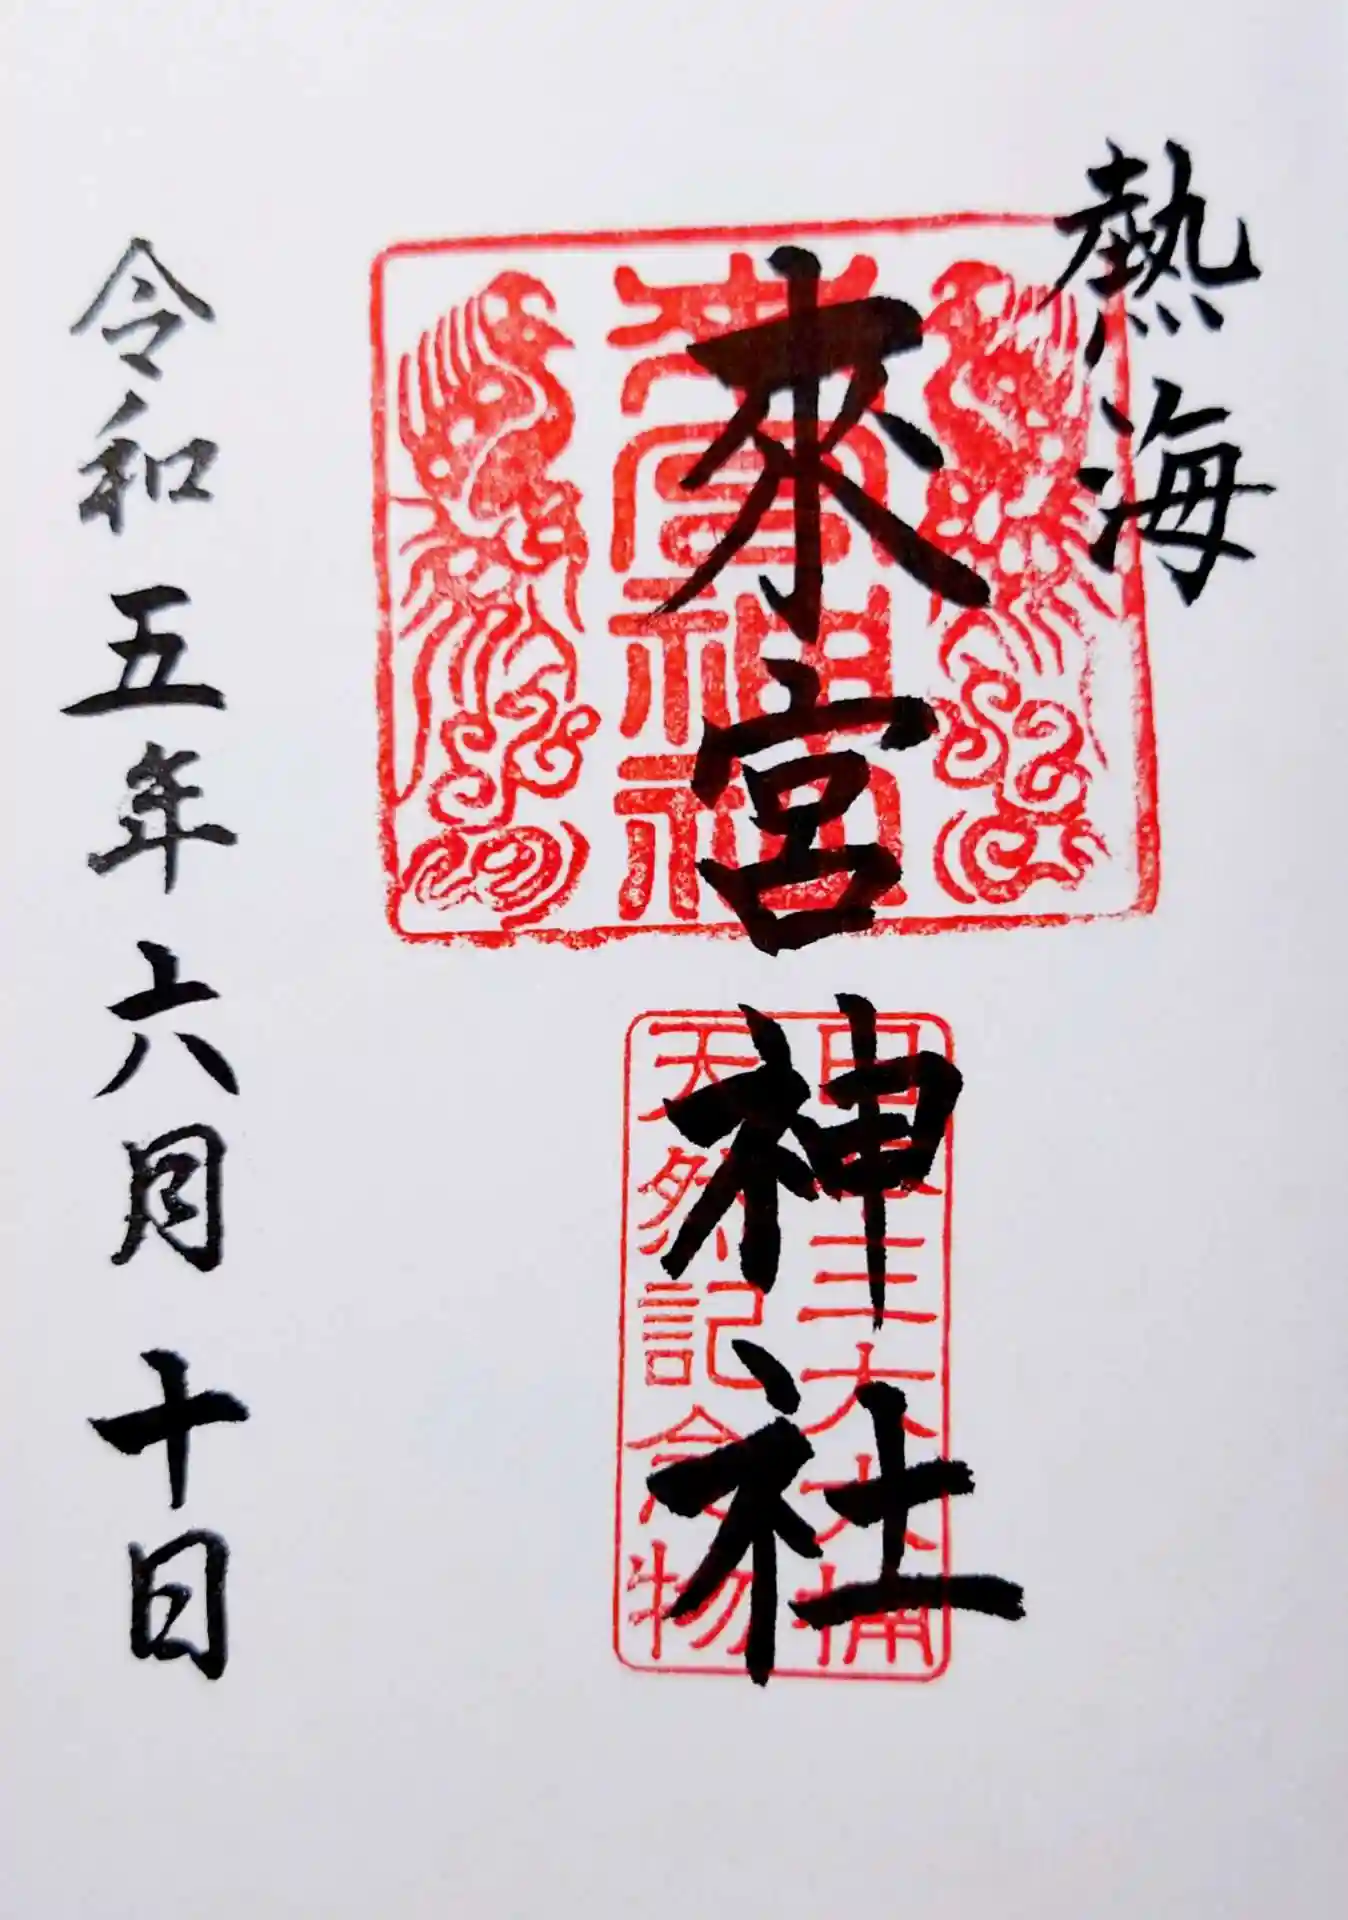 熱海
來宮神社
來宮神社
日本三大大楠
天然記念物
令和五年六月十日